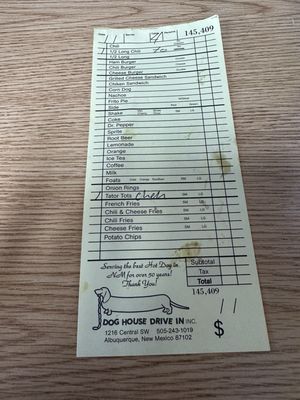 145,409
Chili
1/2 Long Chili
1/2 Long
Ham Burger
Chili Burger
Cheese Burger
Grilled Cheese Sandwich
Chicken Sandwich
Corn Dog
Nachos
Frito Pie
Side
Shake SM LG
Coke
Dr. Pepper
Sprite
Root Beer
Lemonade
Orange
Ice Tea
Coffee
Milk
Foats Coke Orange RootBeer SM LG
Onion Rings
Tator Tots SM LG
French Fries SM LG
Chili & Cheese Fries SM LG
Chili Fries SM LG
Cheese Fries SM LG
Potato Chips
Serving the best Hot Dog in
NM for over 50 years!
Thank You!
Subtotal
Tax
Total
145,409
DOG HOUSE DRIVE IN INC.
1216 Central SW 505-243-1019
Albuquerque, New Mexico 87102
$